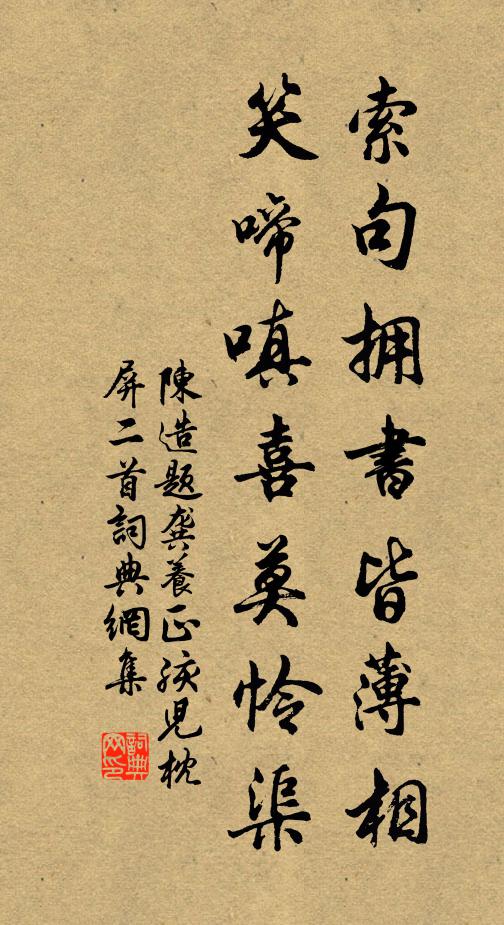 索句拥書皆薄相
笑啼嗔喜莫怜渠
陳造題龔養正孩児枕
屏二首詞典網集
詞典
网印